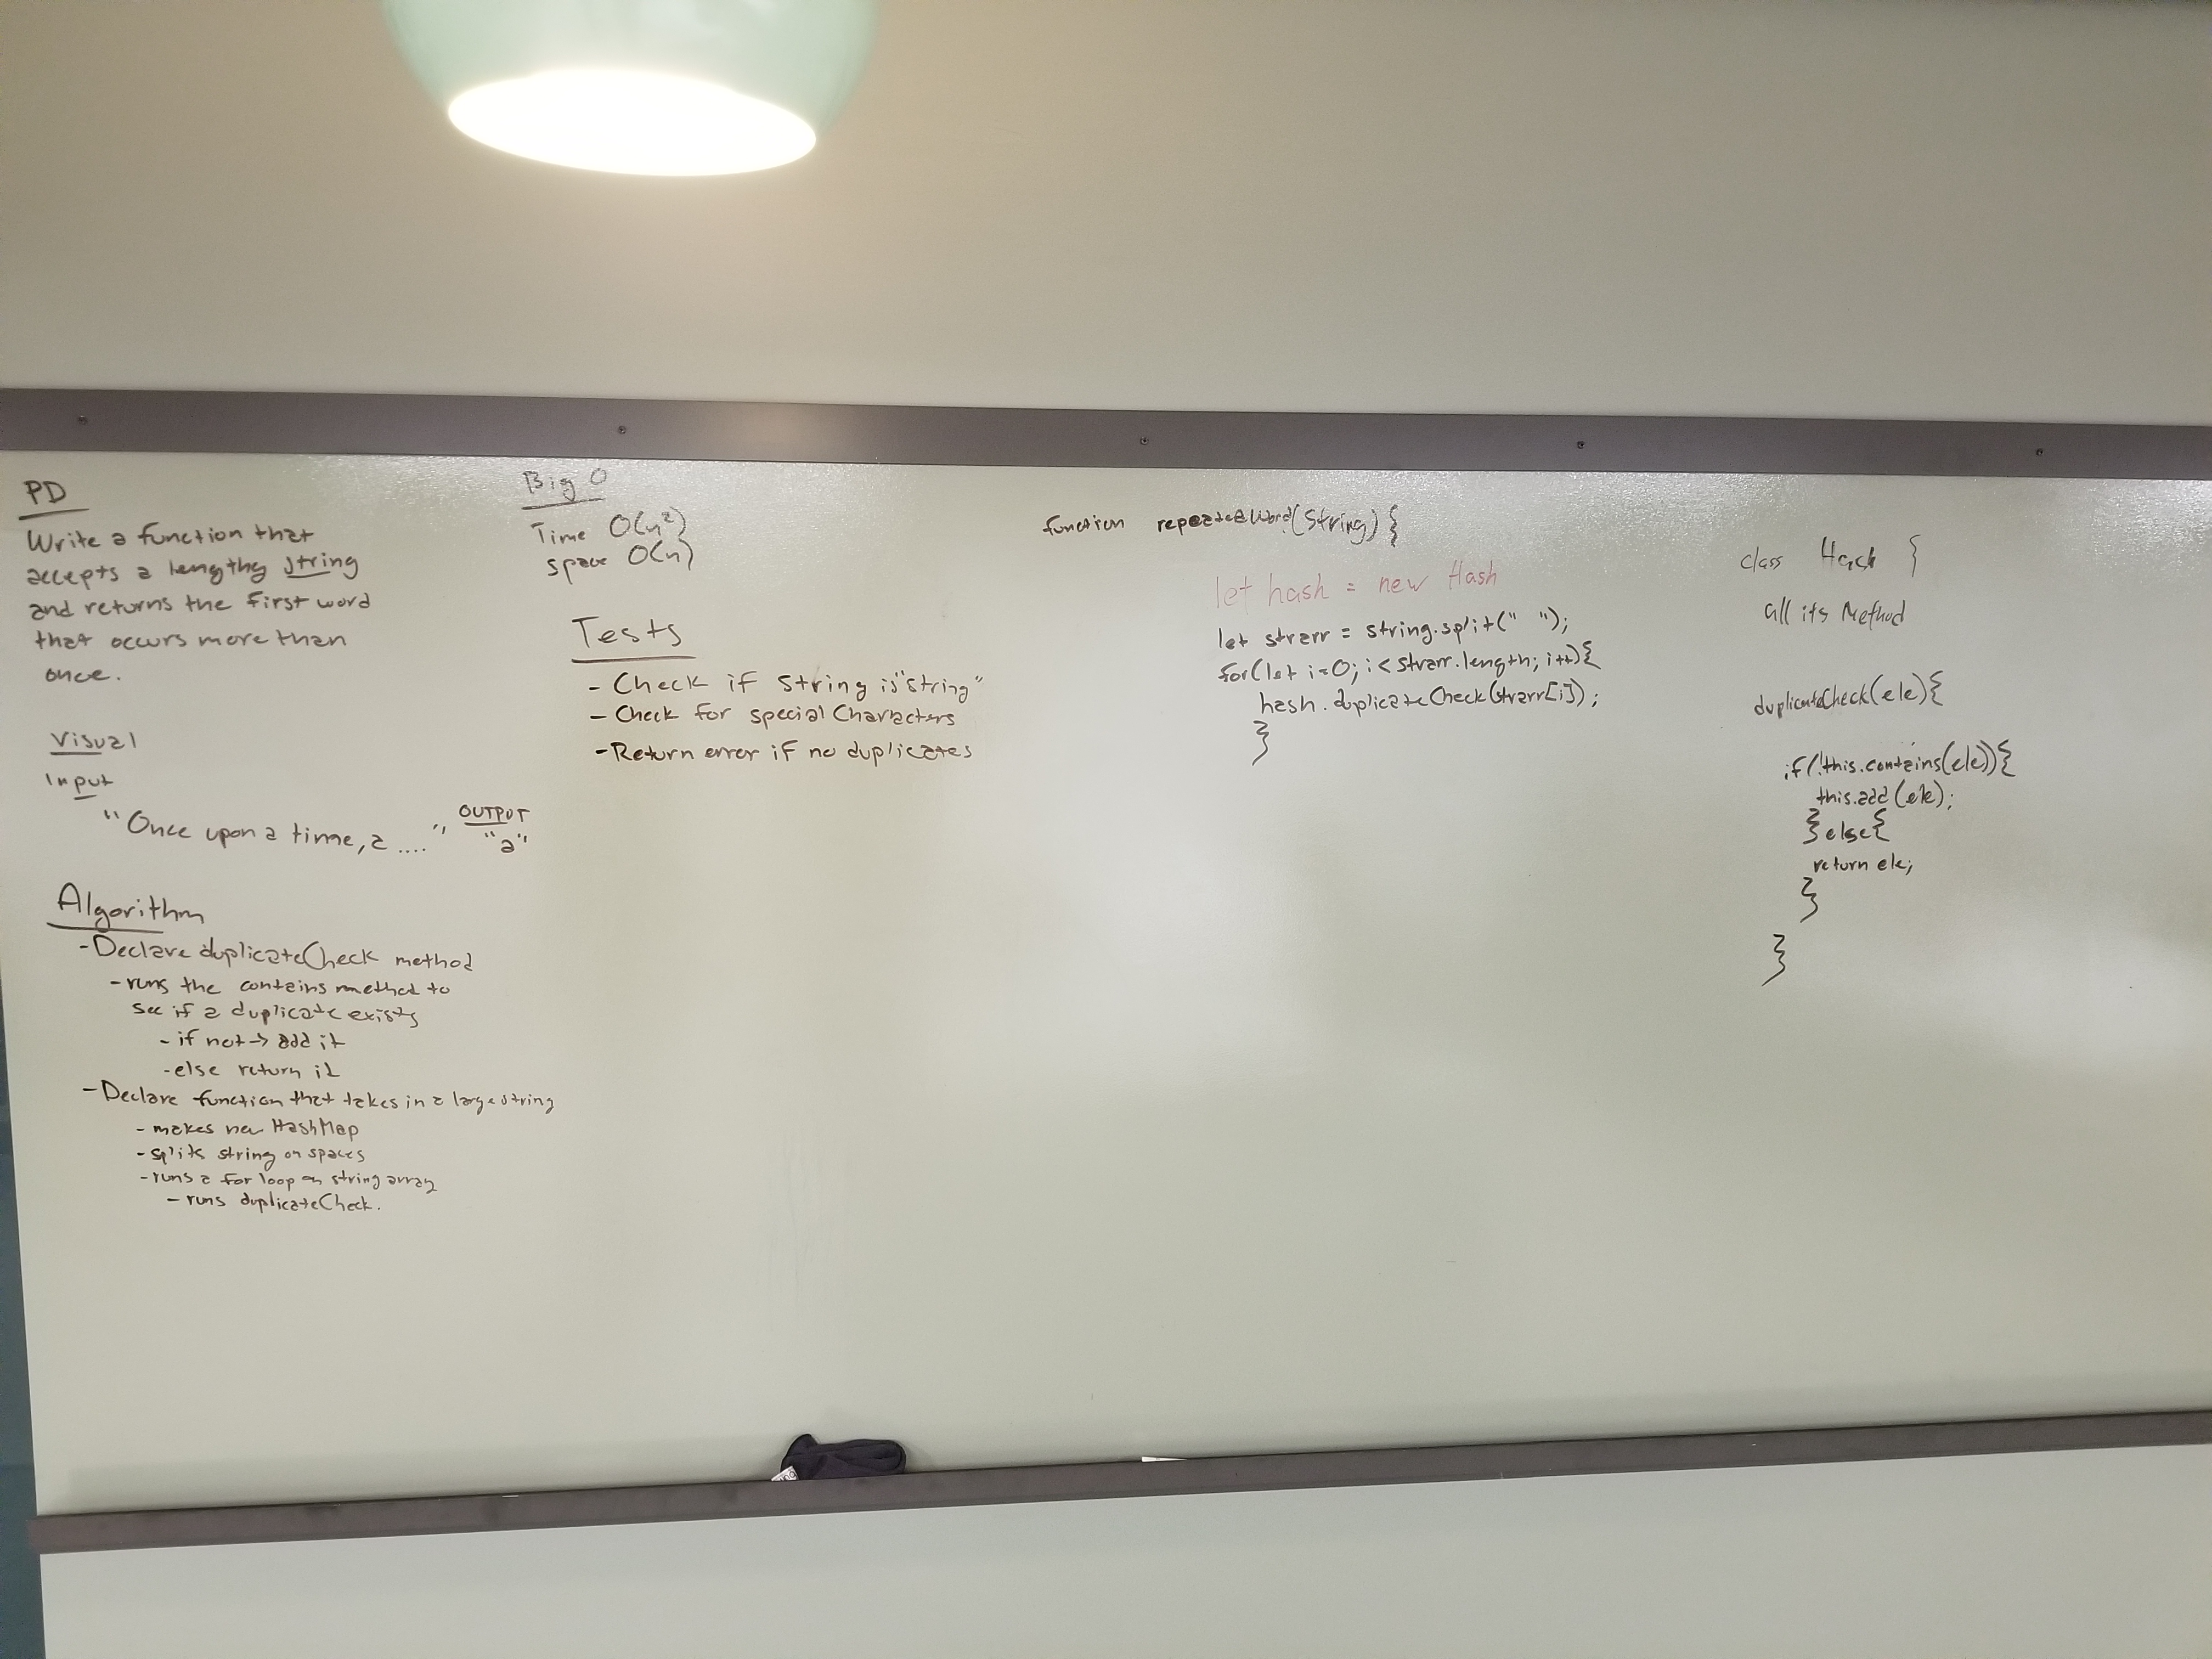 PD
Write a function that
accepts a lengthy string
and returns the first word
that occurs more than
once.
Visual
Input
"Once upon a time, a ...."
OUTPUT
"a"
Algorithm
- Declare duplicateCheck method
- runs the contains method to
see if a duplicate exists
- if not → add it
- else return it
- Declare function that takes in a large string
- makes new HashMap
- splits string on spaces
- runs a for loop on string array
- runs duplicateCheck.
Big O
Time O(n²)
space O(n)
Tests
- Check if string is "string"
- Check for special Characters
- Return error if no duplicates
function repeatedWord(string) {
let hash = new Hash
let strarr = string.split(" ");
for(let i=0; i < strarr.length; i++){
hash.duplicateCheck(strarr[i]);
}
class Hash {
all its Method
duplicateCheck(ele){
if(!this.contains(ele)){
this.add(ele);
}else{
return ele;
}
}